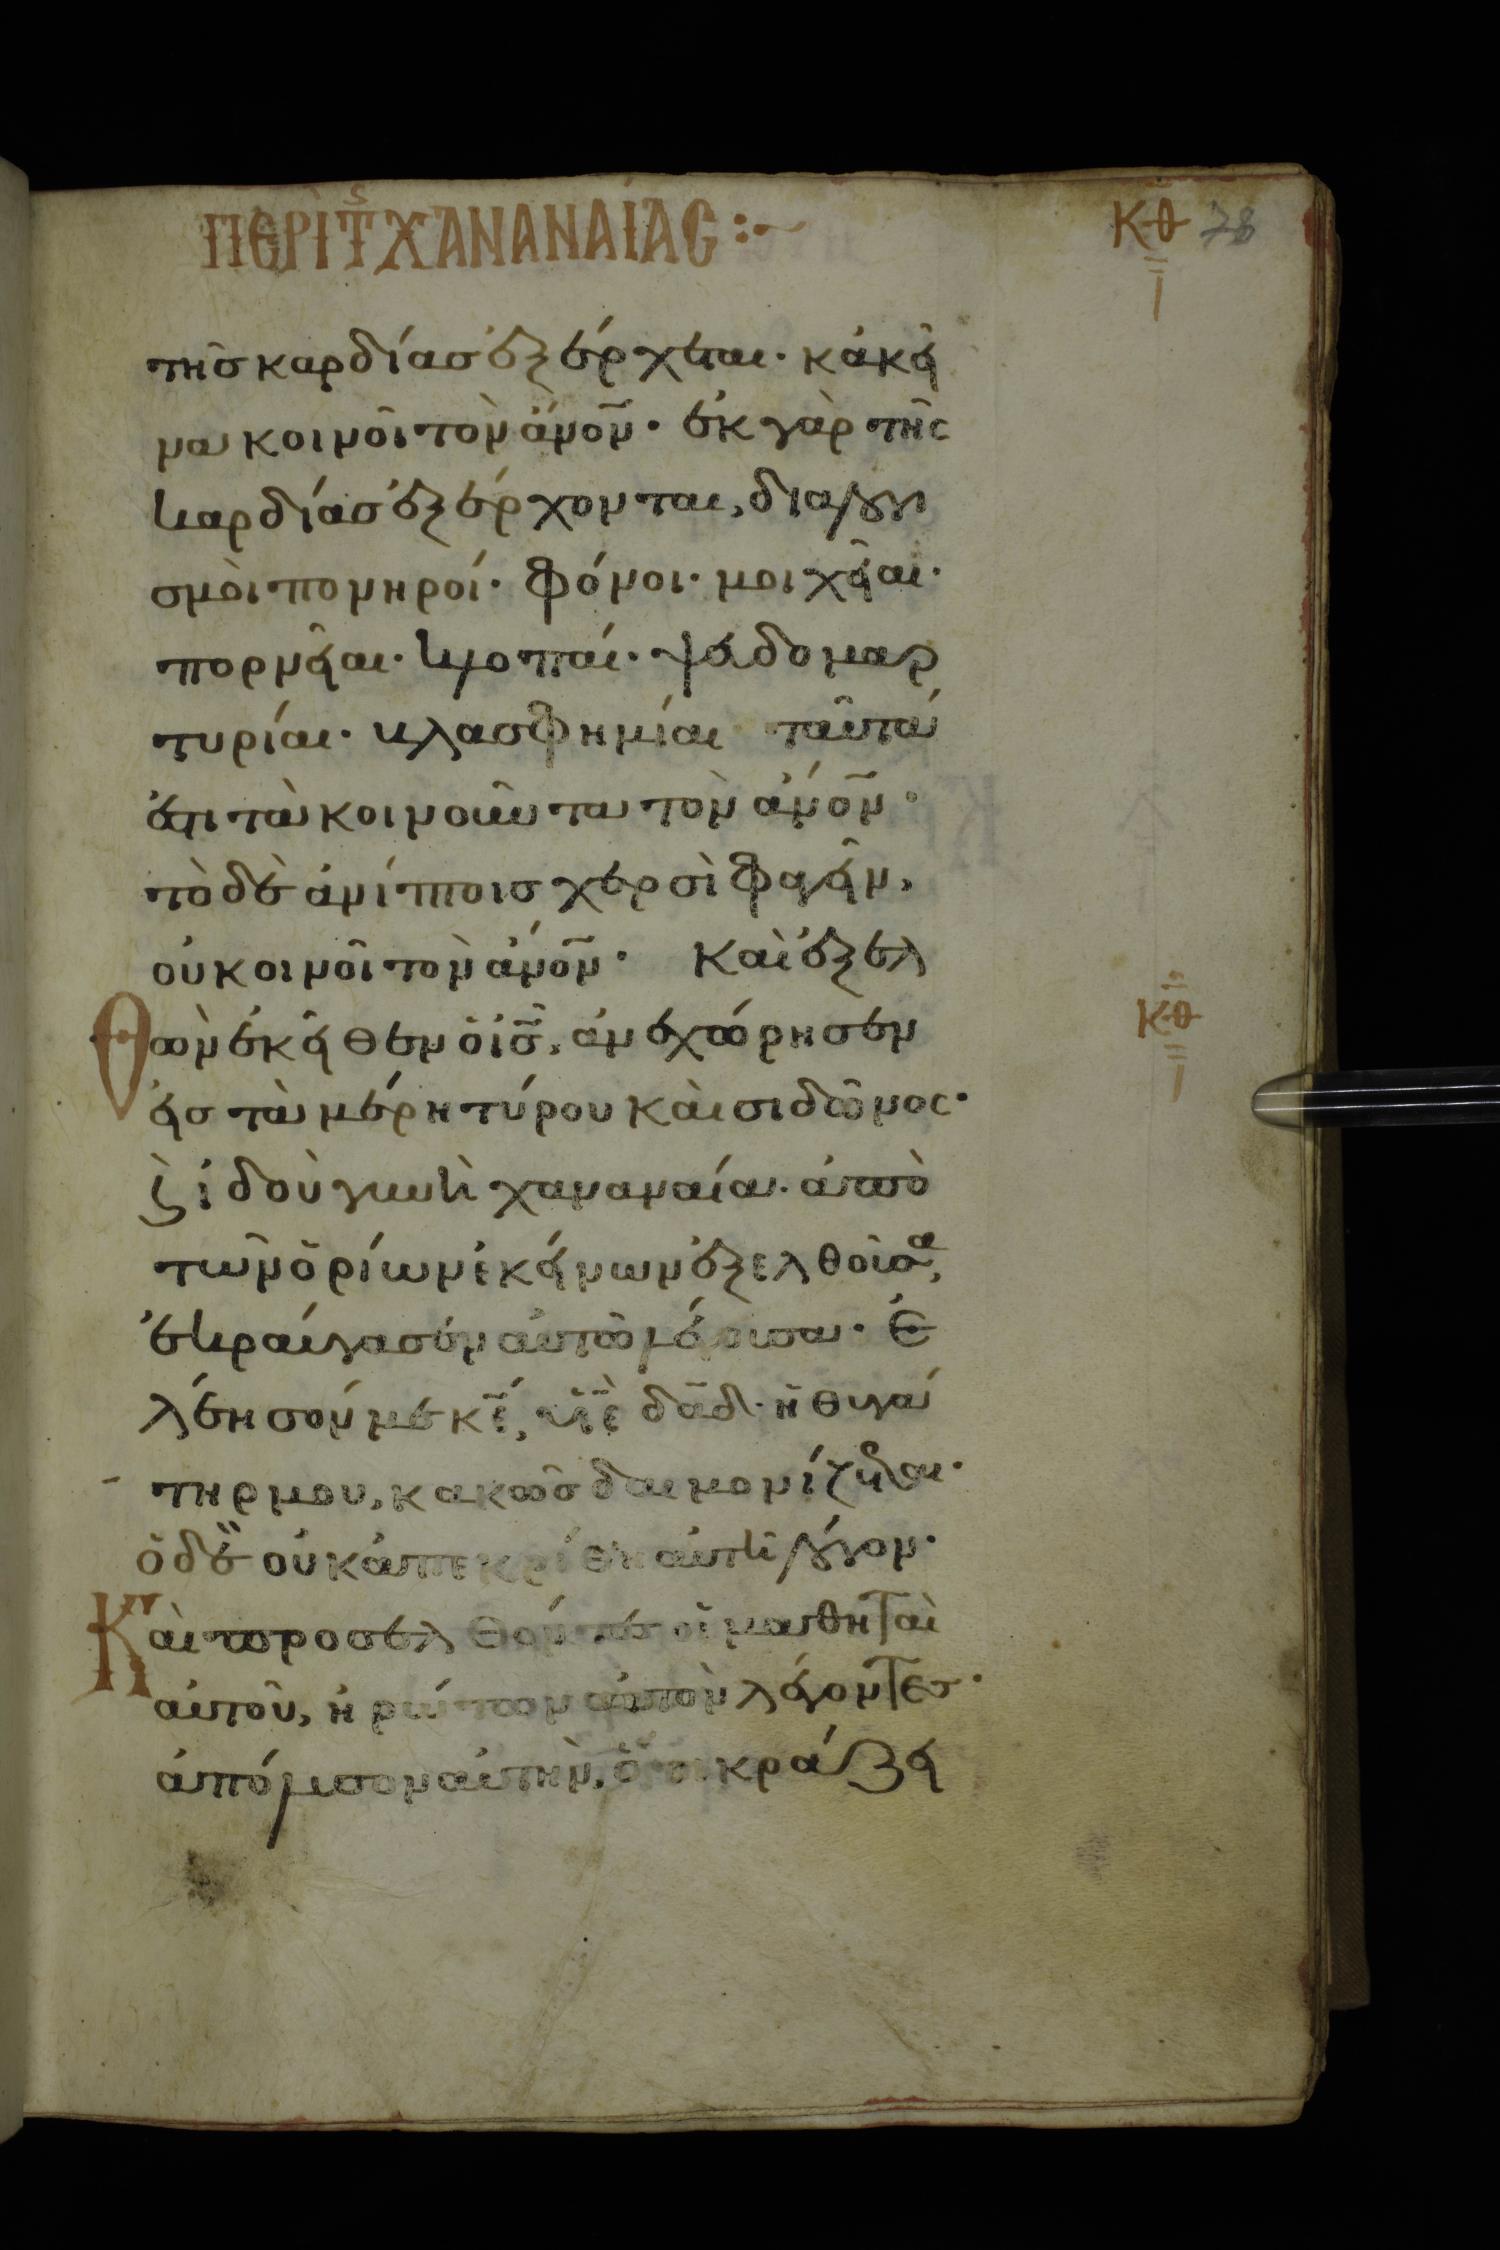 ΠΕΡῚ Τ͂ς ΧΑΝΑΝΑΊΑC :~
κθ 78
τῆς καρδίας ἐξέρχεται· κἀκεῖ
να κοινοῖ τὸν ἄν̅ον· ἐκ γὰρ τῆς
καρδίας ἐξέρχονται, διαλογι
σμὸι πονηροί· φόνοι· μοιχεῖαι·
πορνεῖαι· κλοπαί· ψευδομαρ
τυρίαι· βλασφημίαι ταῦτά
ἐστι τὰ κοινοῦντα τὸν ἄν̅ον·
τὸ δὲ ἀνίπτοις χερσὶ φαγεῖν,
οὐ κοινοῖ τὸν ἄν̅ον· Καὶ ἐξελ
θὼν ἐκεῖθεν ὁ ι̅ς̅, ἀνεχώρησεν
εἰς τὰ μέρη τύρου κὰι σιδῶνος·
κθ
ϗ ἰδοὺ γυνὴ χαναναία· ἀπὸ
τῶν ὁρίων ἐκείνων ἐξελθοῦσα,
ἐκραύγασεν αὐτῶ λέγουσα· ἐ
λέησόν με κ̅ε̅, υ̅ἱ̅ὲ̅ δ̅α̅δ̅· ἡ θυγά
τηρ μου, κακῶς δαιμονίζεται·
ὁ δὲ οὐκ ἀπεκρίθη αὐτῆ λόγον·
Κὰι προσελθόντες οἱ μαθηταὶ
αὐτοῦ, ἠρώτων αὐτὸν λέγοντες·
ἀπόλυσον αὐτὴν, ὅτι κράζει